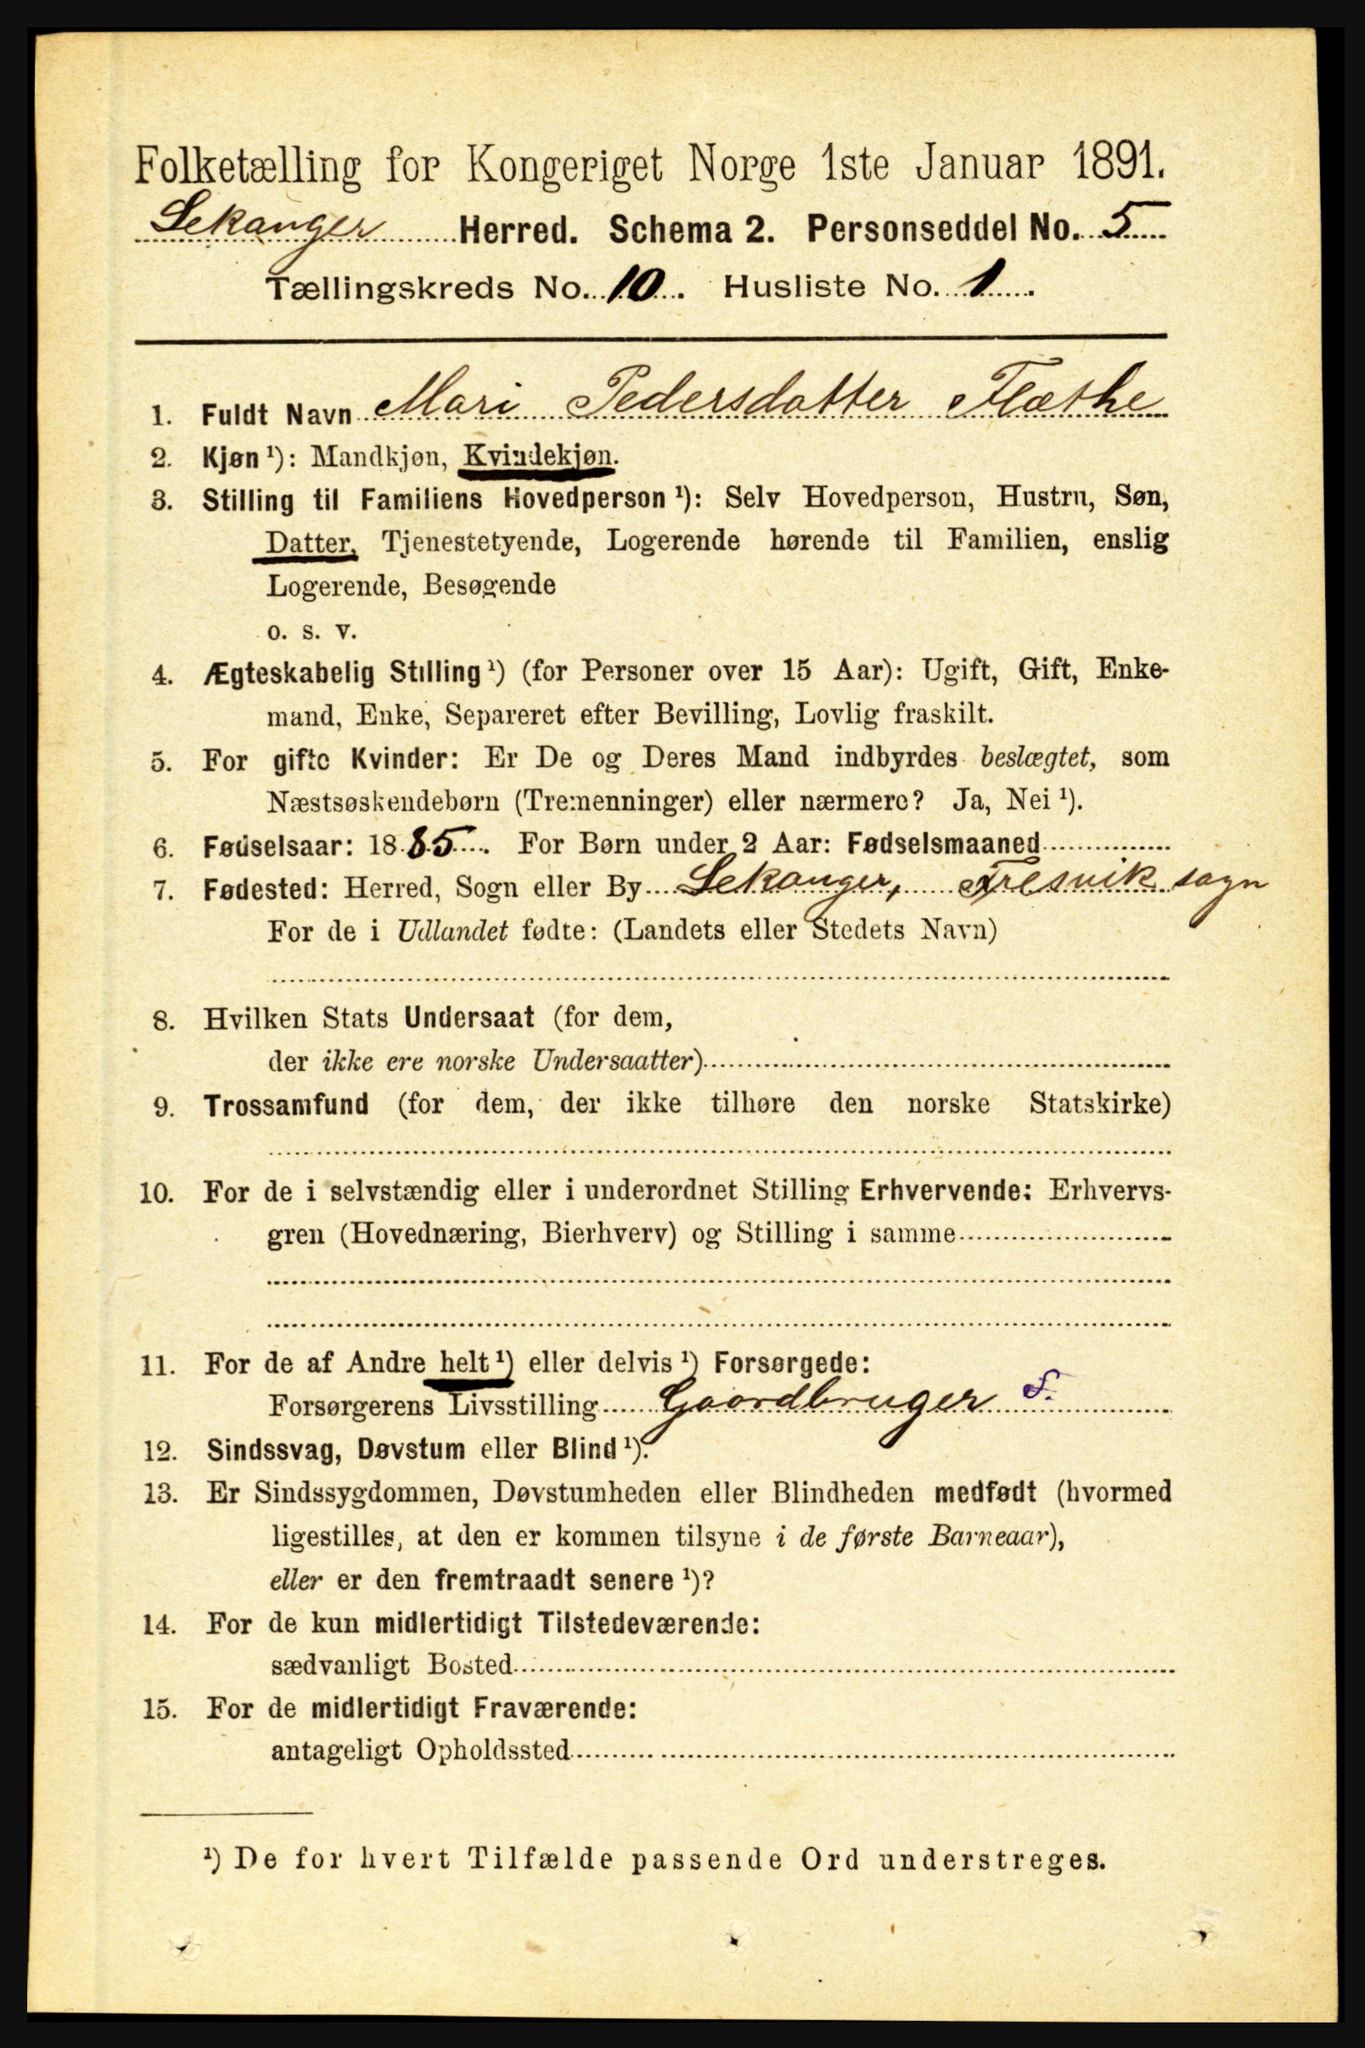 Folketælling for Kongeriget Norge 1ste Januar 1891.
Lekanger Herred. Schema 2. Personseddel No. 5
Tællingskreds No. 10. Husliste No. 1.
1. Fuldt Navn Mari Pedersdatter Flæthe
2. Kjøn ¹): Mandkjøn, Kvindekjøn.
3. Stilling til Familiens Hovedperson ¹): Selv Hovedperson, Hustru, Søn,
Datter, Tjenestetyende, Logerende hørende til Familien, enslig
Logerende, Besøgende
o. s. v.
4. Ægteskabelig Stilling ¹) (for Personer over 15 Aar): Ugift, Gift, Enke-
mand, Enke, Separeret efter Bevilling, Lovlig fraskilt.
5. For gifte Kvinder: Er De og Deres Mand indbyrdes beslægtet, som
Næstsøskendebørn (Tremenninger) eller nærmere? Ja, Nei ¹).
6. Fødselsaar: 1885. For Børn under 2 Aar: Fødselsmaaned
7. Fødested: Herred, Sogn eller By Lekanger, Fresvik sogn
For de i Udlandet fødte: (Landets eller Stedets Navn)
8. Hvilken Stats Undersaat (for dem,
der ikke ere norske Undersaatter)
9. Trossamfund (for dem, der ikke tilhøre den norske Statskirke)
10. For de i selvstændig eller i underordnet Stilling Erhvervende: Erhvervs-
gren (Hovednæring, Bierhverv) og Stilling i samme
11. For de af Andre helt ¹) eller delvis ¹) Forsørgede:
Forsørgerens Livsstilling Gaardbruger S.
12. Sindssvag, Døvstum eller Blind ¹).
13. Er Sindssygdommen, Døvstumheden eller Blindheden medfødt (hvormed
ligestilles, at den er kommen tilsyne i de første Barneaar),
eller er den fremtraadt senere ¹)?
14. For de kun midlertidigt Tilstedeværende:
sædvanligt Bosted
15. For de midlertidigt Fraværende:
antageligt Opholdssted
¹) De for hvert Tilfælde passende Ord understreges.